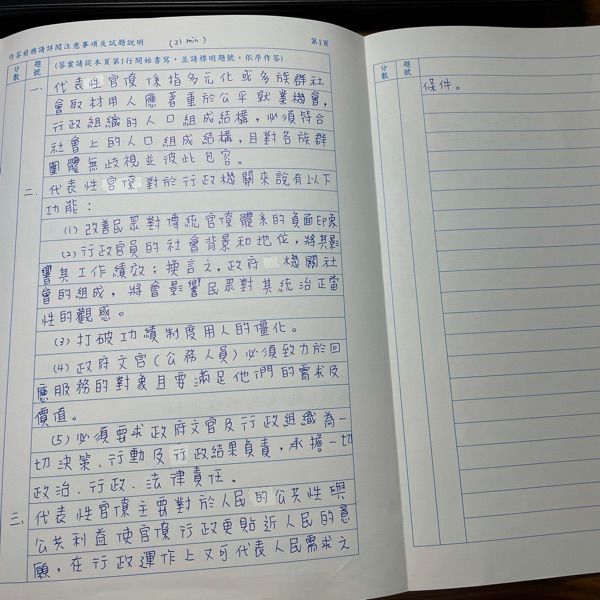 作答前務請詳閱注意事項及試題說明
(21 min)
第1頁
分數 題號 (答案請從本頁第1行開始書寫，並請標明題號，依序作答)
一、代表性官僚係指多元化或多族群社
會取材用人應著重於公平就業機會，
行政組織的人口組成結構，必須符合
社會上的人口組成結構，且對各族群
團體無歧視並彼此包容。
二、代表性官僚對於行政機關來說有以下
功能：
(1) 改善民眾對傳統官僚體系的負面印象
(2) 行政官員的社會背景和地位，將其影
響其工作績效；換言之，政府機關社
會的組成，將會影響民眾對其統治正當
性的觀感。
(3) 打破功績制度用人的僵化。
(4) 政府文官(公務人員)必須致力於回
應服務的對象且要滿足他們的需求及
價值。
(5) 必須要求政府文官及行政組織為一
切決策、行動及行政結果負責，承擔一切
政治、行政、法律責任。
三、代表性官僚主要對於人民的公共性與
公共利益使官僚行政更貼近人民的意
願，在行政運作上又可代表人民需求之
分數 題號
條件。